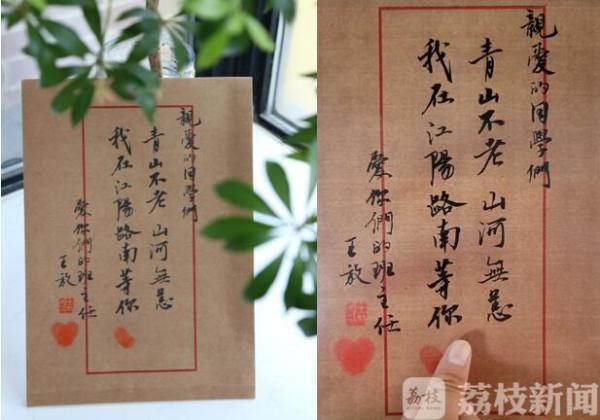 親愛的同學們
青山不老 山河無恙
我在江陽路南等你
愛你們的班主任
王放
親愛的同學們
青山不老 山河無恙
我在江陽路南等你
愛你們的班主任
王放
荔枝
荔枝新闻